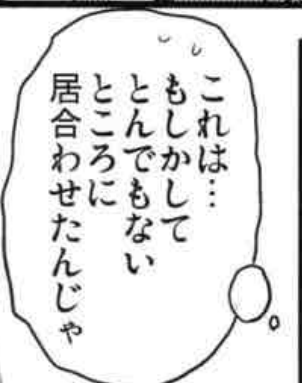 これは…
もしかして
とんでもない
ところに
居合わせたんじゃ